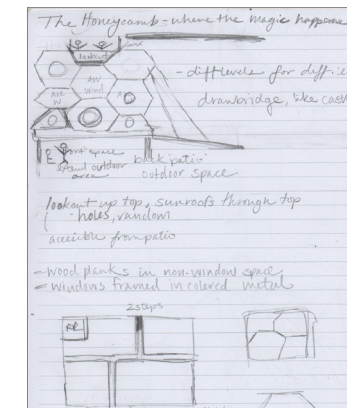 The Honeycomb - where the magic happens
lookout
AW
wind
- diff levels for diffic
drawbridge, like cast
space
outdoor
area
back patio
outdoor space
lookout up top, sunroofs through top
- holes, random
accesible from patio
- wood planks in non-window space
- windows framed in colored metal
2 steps
RR